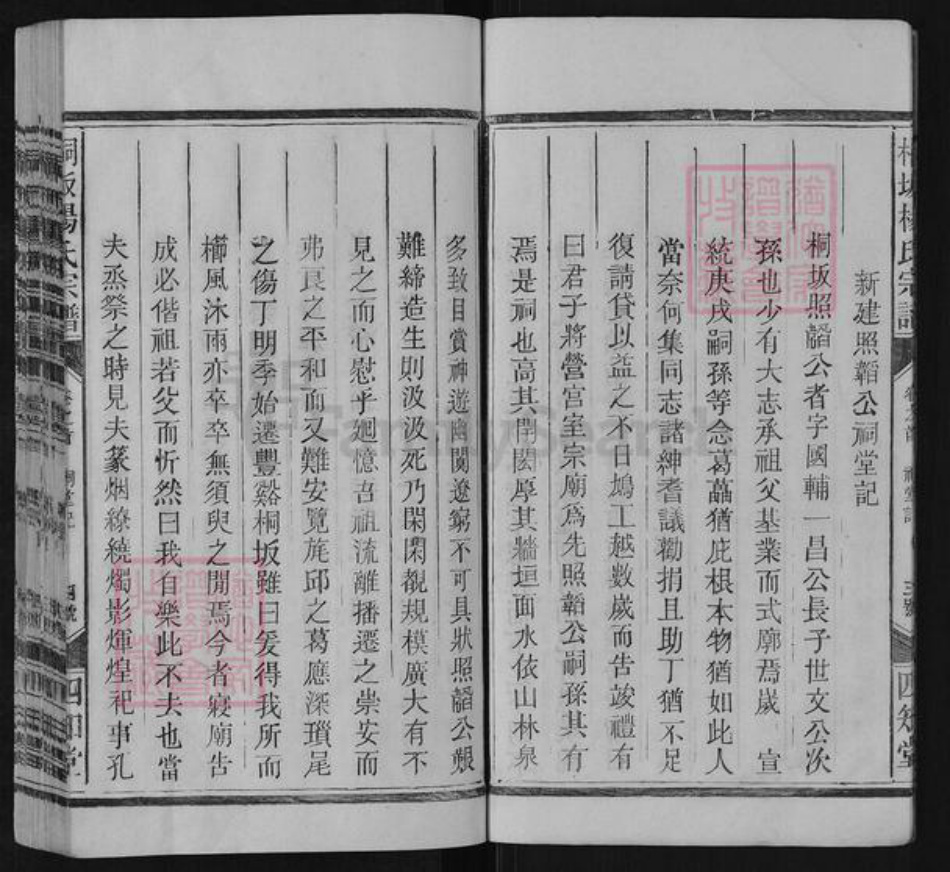 新建照韜公祠堂記
桐坂照韜公者字國輔一昌公長子世文公次
孫也少有大志承祖父基業而式廓焉歲 宣
統庚戌嗣孫等念葛藟猶庇根本物猶如此人
當奈何集同志諸紳耆議勸捐且助丁猶不足
復請貸以益之不日鳩工越數歲而告竣禮有
曰君子將營宮室宗廟爲先照韜公嗣孫其有
焉是祠也高其閈閎厚其牆垣面水依山林泉
多致目賞神遊幽闃遼夐不可具狀照韜公艱
難締造生則汲汲死乃閑閑覩規模廣大有不
見之而心慰乎廻憶吾祖流離播遷之崇安而
弗艮之平和而又難安覽旄邱之葛應深瑣尾
之傷丁明季始遷豐谿桐坂雖曰爰得我所而
櫛風沐雨亦卒卒無須臾之閒焉今者寢廟告
成必偕祖若父而忻然曰我自樂此不夫也當
夫烝祭之時見夫篆烟繚繞燭影煇煌祀事孔
桐坂楊氏宗譜
祠堂記
三號
四知堂
桐坂楊氏宗譜
祠堂記
四號
四知堂
FamilySearch